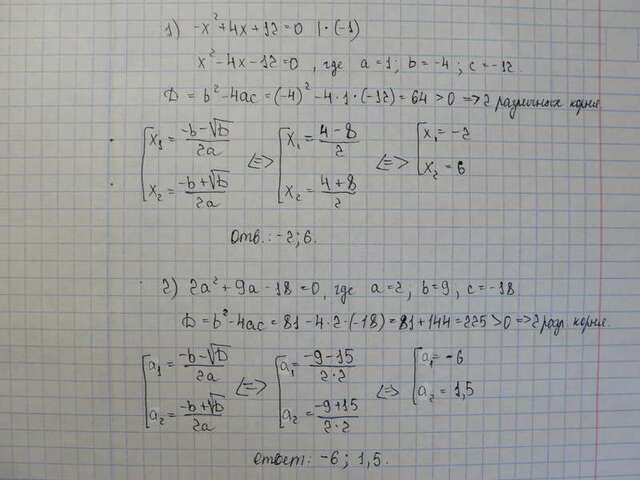 1) -x²+4x+12=0 |·(-1)
x²-4x-12=0, где a=1; b=-4; c=-12.
D=b²-4ac=(-4)²-4·1·(-12)=64>0 => 2 различных корня
[x₁=(-b-√D)/2a <=> [x₁=(4-8)/2 <=> [x₁=-2
[x₂=(-b+√D)/2a [x₂=(4+8)/2 [x₂=6
Отв.: -2; 6.
2) 2a²+9a-18=0, где a=2, b=9, c=-18
D=b²-4ac=81-4·2·(-18)=81+144=225>0 => 2 разл. корня.
[a₁=(-b-√D)/2a <=> [a₁=(-9-15)/2·2 <=> [a₁=-6
[a₂=(-b+√D)/2a [a₂=(-9+15)/2·2 [a₂=1,5
ответ: -6; 1,5.